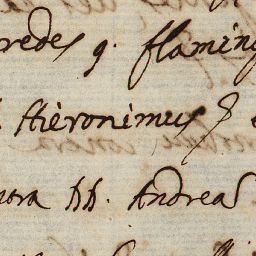 redes q. flaming
Hieronimus
nora hh. Andrea